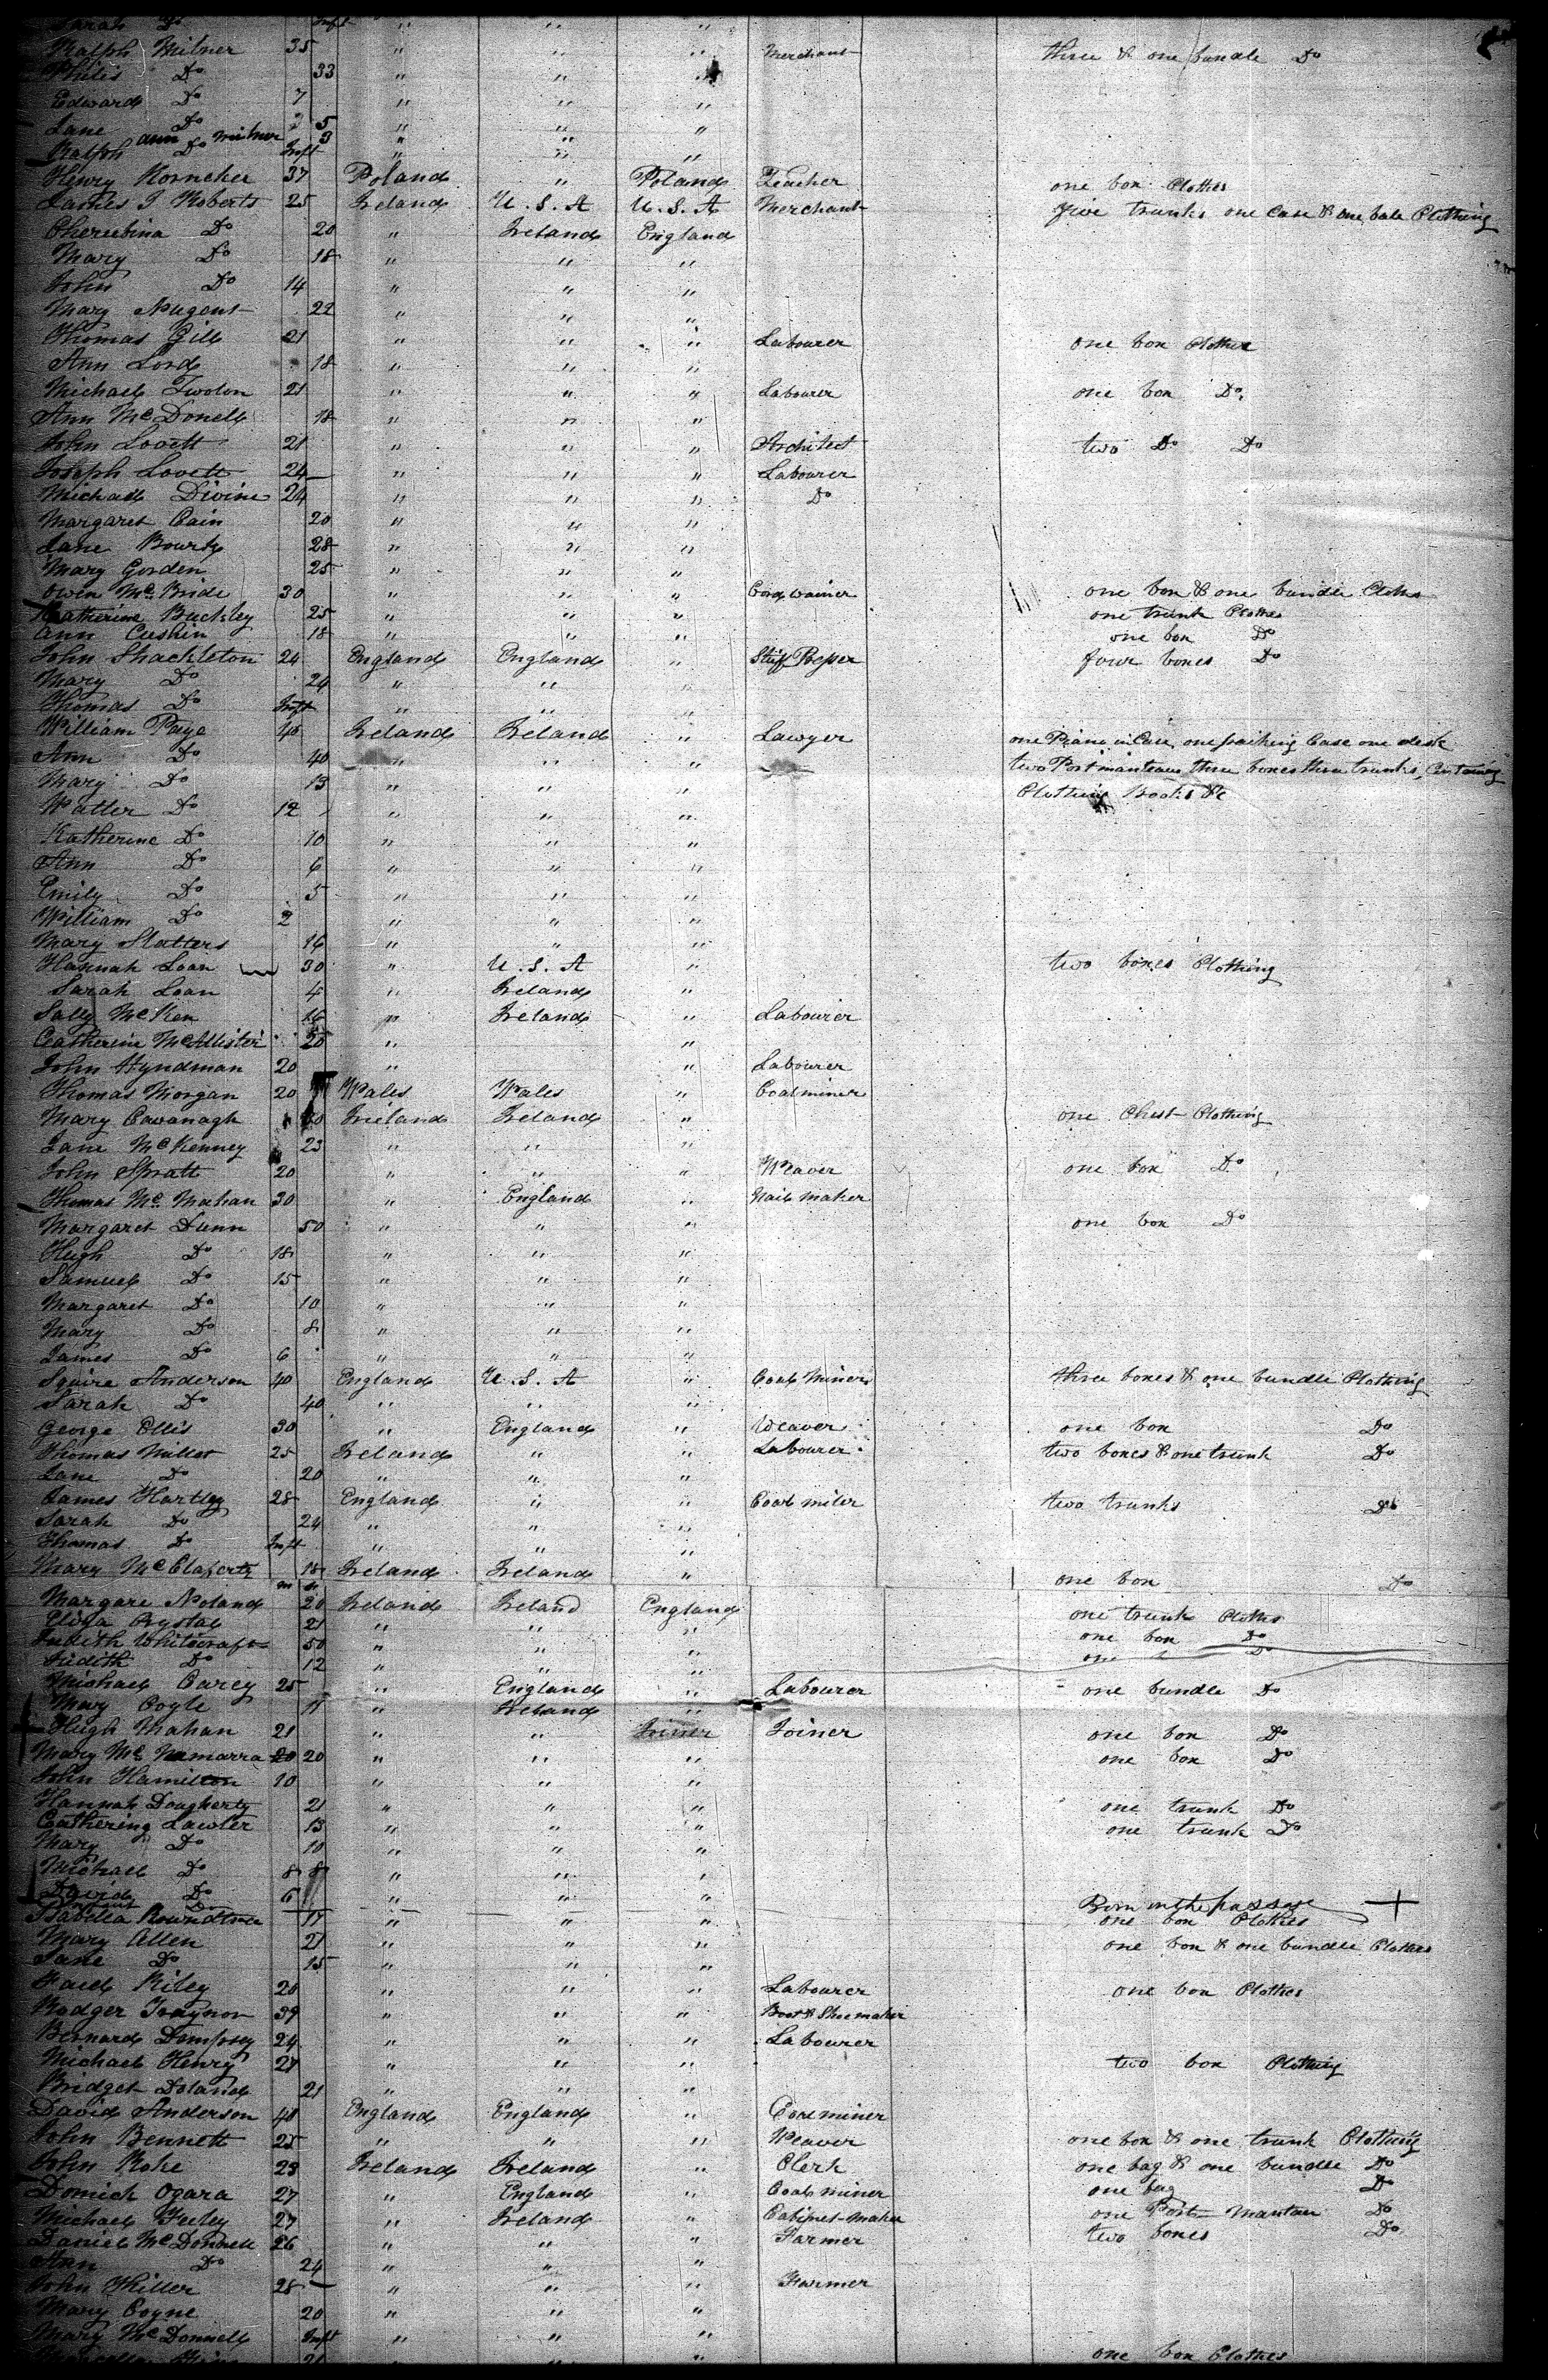 Sarah Do Inft " " "
Ralph Milner 35 " " " Merchant three & one bundle Do
Philis Do 33 " " "
Edward Do 7 " " "
Jane Do 5 " " "
Ann Milner 3 "
Ralph Do Inft " " "
Henry Korneker 37 Poland " Poland Teacher one box Clothes
James J Roberts 25 Ireland U.S.A U.S.A Merchant five trunks one Case & one bale Clothing
Cherubina Do 20 " Ireland England
Mary Do 18 " " "
John Do 14 " " "
Mary Nugent 22 " " "
Thomas Gill 21 " " " Labourer one box Clothes
Ann Lord 18 " " "
Michael Twolon 21 " " " Labourer one box Do
Ann McDonell 18 " " "
John Lovett 21 " " " Architect two Do Do
Joseph Lovett 24 " " " Labourer
Michael Divine 24 " " " Do
Margaret Cain 20 " " "
Jane Bourk 28 " " "
Mary Gorden 25 " " "
Owen McBride 30 " " " Cordwainer one box & one bundle Cloths
Katherine Buckley 25 " " " one trunk Clothes
Ann Cuskin 18 " " " one box Do
John Shackleton 24 England England " Stuff Presser four boxes Do
Mary Do 24 " " "
Thomas Do Inft " " "
William Page 45 Ireland Ireland " Lawyer one Piano in Case, one packing Case one desk
Ann Do 40 " " " two Portmanteaus three boxes three trunks, Containing
Mary Do 13 " " " Clothing Books &c
Walter Do 12 " " "
Katherine Do 10 " " "
Ann Do 6 " " "
Emily Do 5 " " "
William Do 2 " " "
Mary Slatters 16 " " "
Hannah Loan 30 " U.S.A " two boxes Clothing
Sarah Loan 4 " Ireland "
Sally McKen 16 " Ireland " Labourer
Catherine McAllister 20 " "
John Hyndman 20 " " Labourer
Thomas Morgan 20 Wales Wales " Coalminer
Mary Cavanagh 20 Ireland Ireland " one Chest Clothing
Jane McKenney 23 " " "
John Spratt 20 " " " Weaver one box Do
Thomas McMahan 30 " England " Nail maker
Margaret Dunn 50 " " " one box Do
Hugh Do 18 " " "
Samuel Do 15 " " "
Margaret Do 10 " " "
Mary Do 8 " " "
James Do 6 " " "
Squire Anderson 40 England U.S.A " Coal Miner three boxes & one bundle Clothing
Sarah Do 40 " " "
George Ellis 30 " England " Weaver one box Do
Thomas Millet 25 Ireland " " Labourer two boxes & one trunk Do
Jane Do 20 " " "
James Hartley 28 England " " Coal miler two trunks Do
Sarah Do 24 " " "
Thomas Do Inft " " "
Mary McClaferty 18 Ireland Ireland " one box Do
Margare Noland 20 Ireland Ireland England one trunk Cloths
Eliza Crystal 21 " " " one box Do
Judith Whitecraft 50 " " " one Do
Judith Do 12 " " "
Michael Carey 25 " England " Labourer one bundle Do
Mary Coyle 11 " Ireland "
Hugh Mahan 21 " " Joiner Joiner one box Do
Mary McNamarra 20 20 " " " one box Do
John Hamilton 10 " " "
Hannah Dougherty 21 " " " one trunk Do
Cathering Lawler 13 " " " one trunk Do
Mary Do 10 " " "
Michael Do 8 8 " " "
David Do 6 " " "
Infant Do Born on the passage
Isabella Roundtree 17 " " " one box Clothes
Mary Allen 21 " " " one box & one bundle Clothes
Jane Do 15 " " "
Riley 20 " " " Labourer one box Clothes
Rodger Traynor 39 " " " Boot & Shoemaker
Bernard Dempsey 24 " " " Labourer
Michael Henry 27 " " " two box Clothing
Bridget Doland 21 " " "
David Anderson 40 England England " Coal miner
John Bennett 25 " " " Weaver one box & one trunk Clothing
John Roke 23 Ireland Ireland " Clerk one bag & one bundle Do
Domick Ogara 27 " England " Coal miner one bag Do
Michael Feeley 27 " Ireland " Cabinet-maker one Port Mantau Do
Daniel McDonnell 26 " " " Farmer two boxes Do
Ann Do 24 " " "
John Hiller 28 " " " Farmer
Mary Coyne 20 " " "
Mary McDonnell Inft " " "
21 " " " one box Clothes